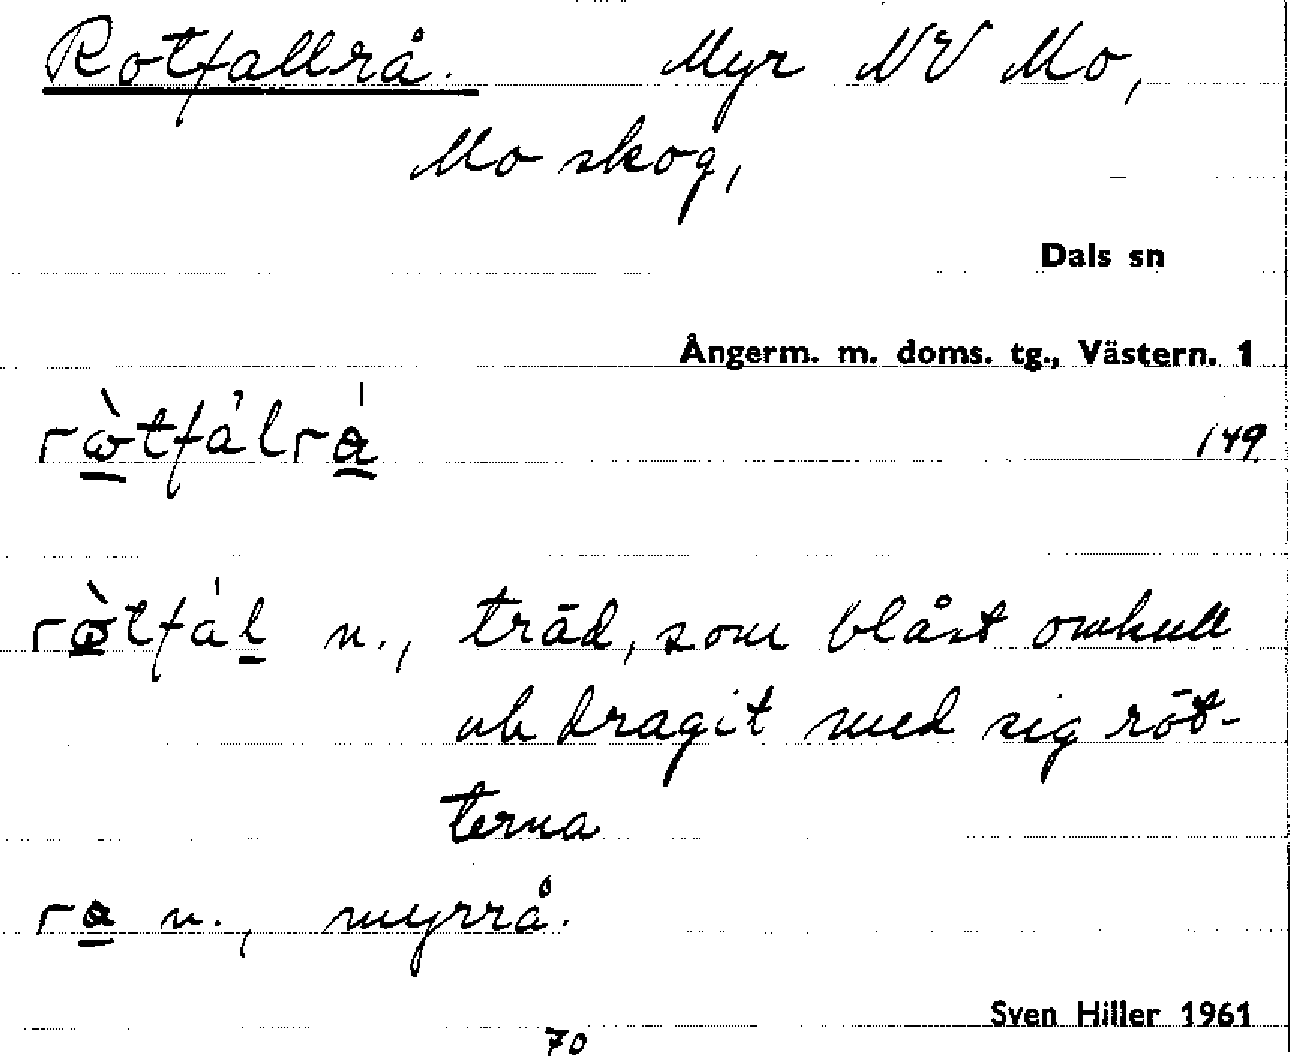 Rotfallrå. Myr NV Mo,
Mo skog,
Dals sn
Ångerm. m. doms. tg., Västern. 1
149
n., träd, som blåst omkull
och dragit med sig röt-
terna
n., myrrå.
Sven Hiller 1961
70